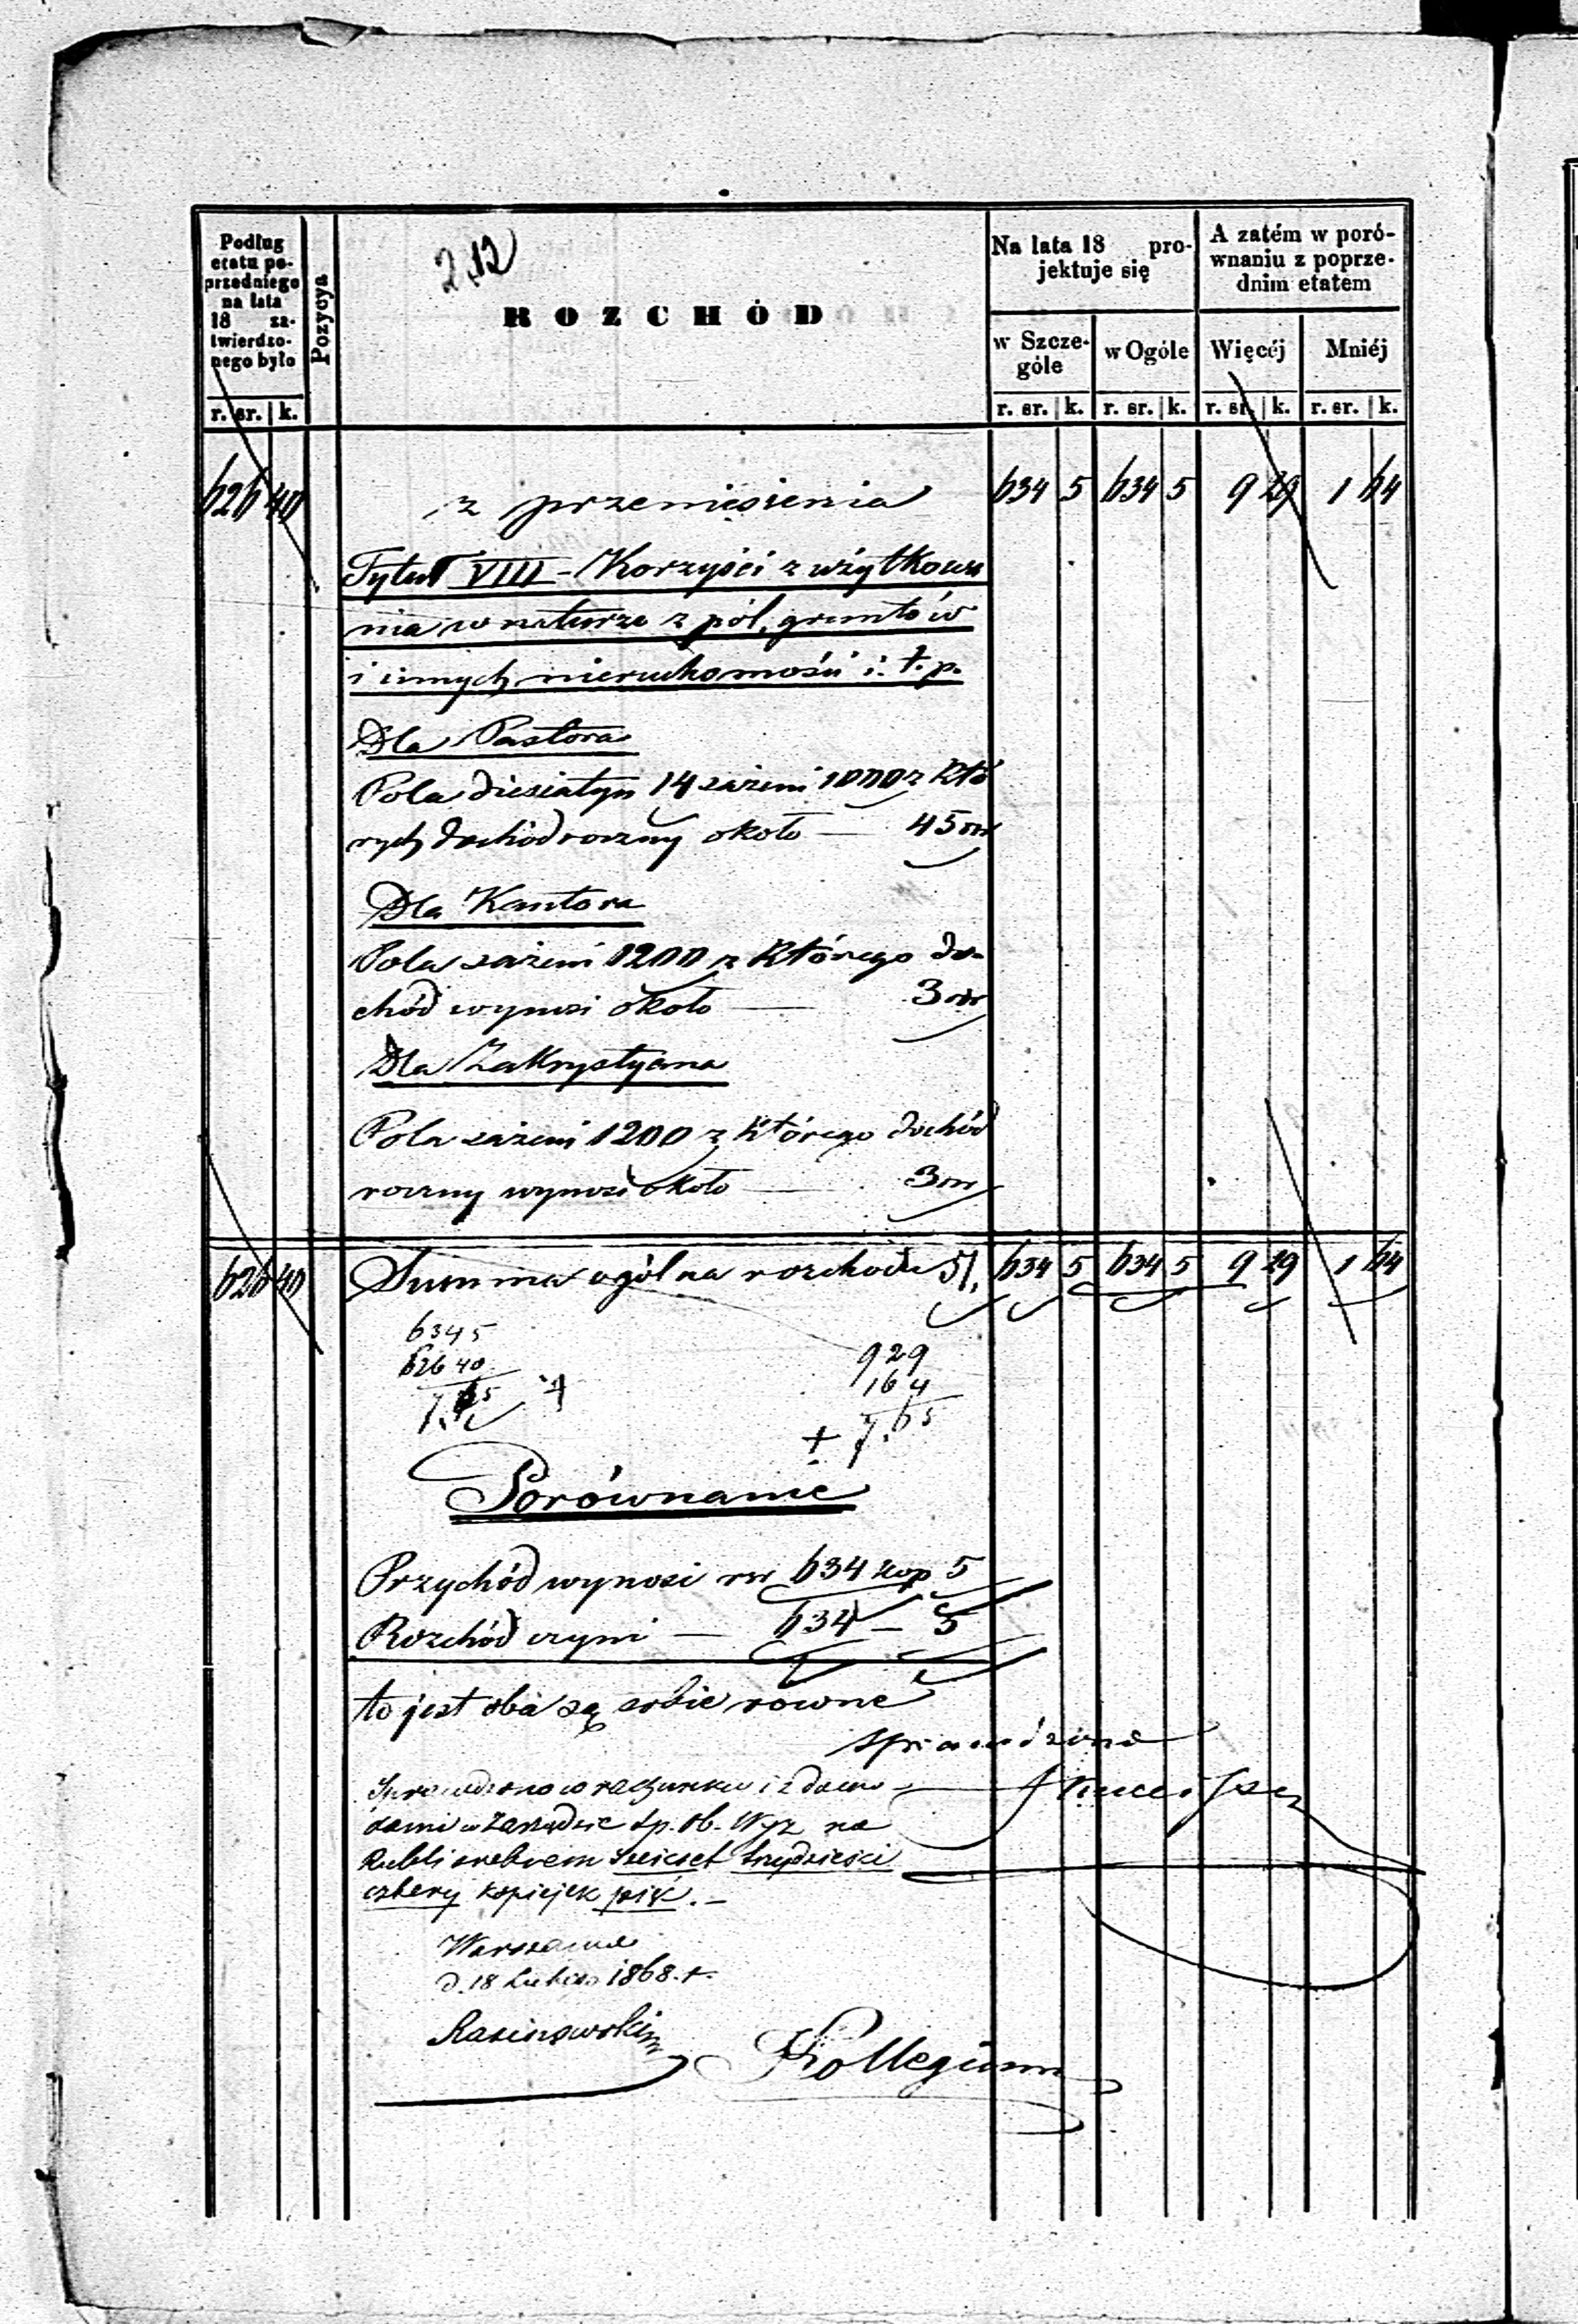 212
Podług etatu po-
przedniego
na lata
18 za-
twierdzo-
nego było
r. sr. k.
Pozycya
ROZCHÓD
Na lata 18 pro-
jektuje się
w Szcze-
góle
w Ogóle
r. sr. k. r. sr. k.
A zatém w poró-
wnaniu z poprze-
dnim etatem
Więcéj Mniéj
r. sr. k. r. sr. k.
626 40 z przeniesienia 634 5 634 5 9 29 1 64
Tytuł VIII - Korzyści z użytkowa
nia w naturze z pól, gruntów
i innych nieruchomości i. t. p.
Dla Pastora
Pola diesiatyn 14 sażeni 1000 z któ
rych dochód roczny około — 45 rsr
Dla Kantora
Pola sażeni 1200 z którego do-
chód wynosi około — 3 rsr
Dla Zakrystyana
Pola sażeni 1200 z którego dochód
roczny wynosi około — 3 rsr
626 40 Summa ogólna rozchodu 51. 634 5 634 5 9 29 1 64
634 5
626 40
7.65
9 29
1 64
+ 7.65
Porównanie
Przychód wynosi rsr 634 kop 5
Rozchód czyni — 634 — 5
to jest oba są sobie równe
Sprawdzono
Sprawdzono w rachunku i z dowo-
dami w Zarządzie Sp. Ob. Wyz na
Rubli srebrem sześćset trzydzieści
cztery kopiejek pięć. -
Warszawa
d. 18 Lutego 1868. r.
Kollegium